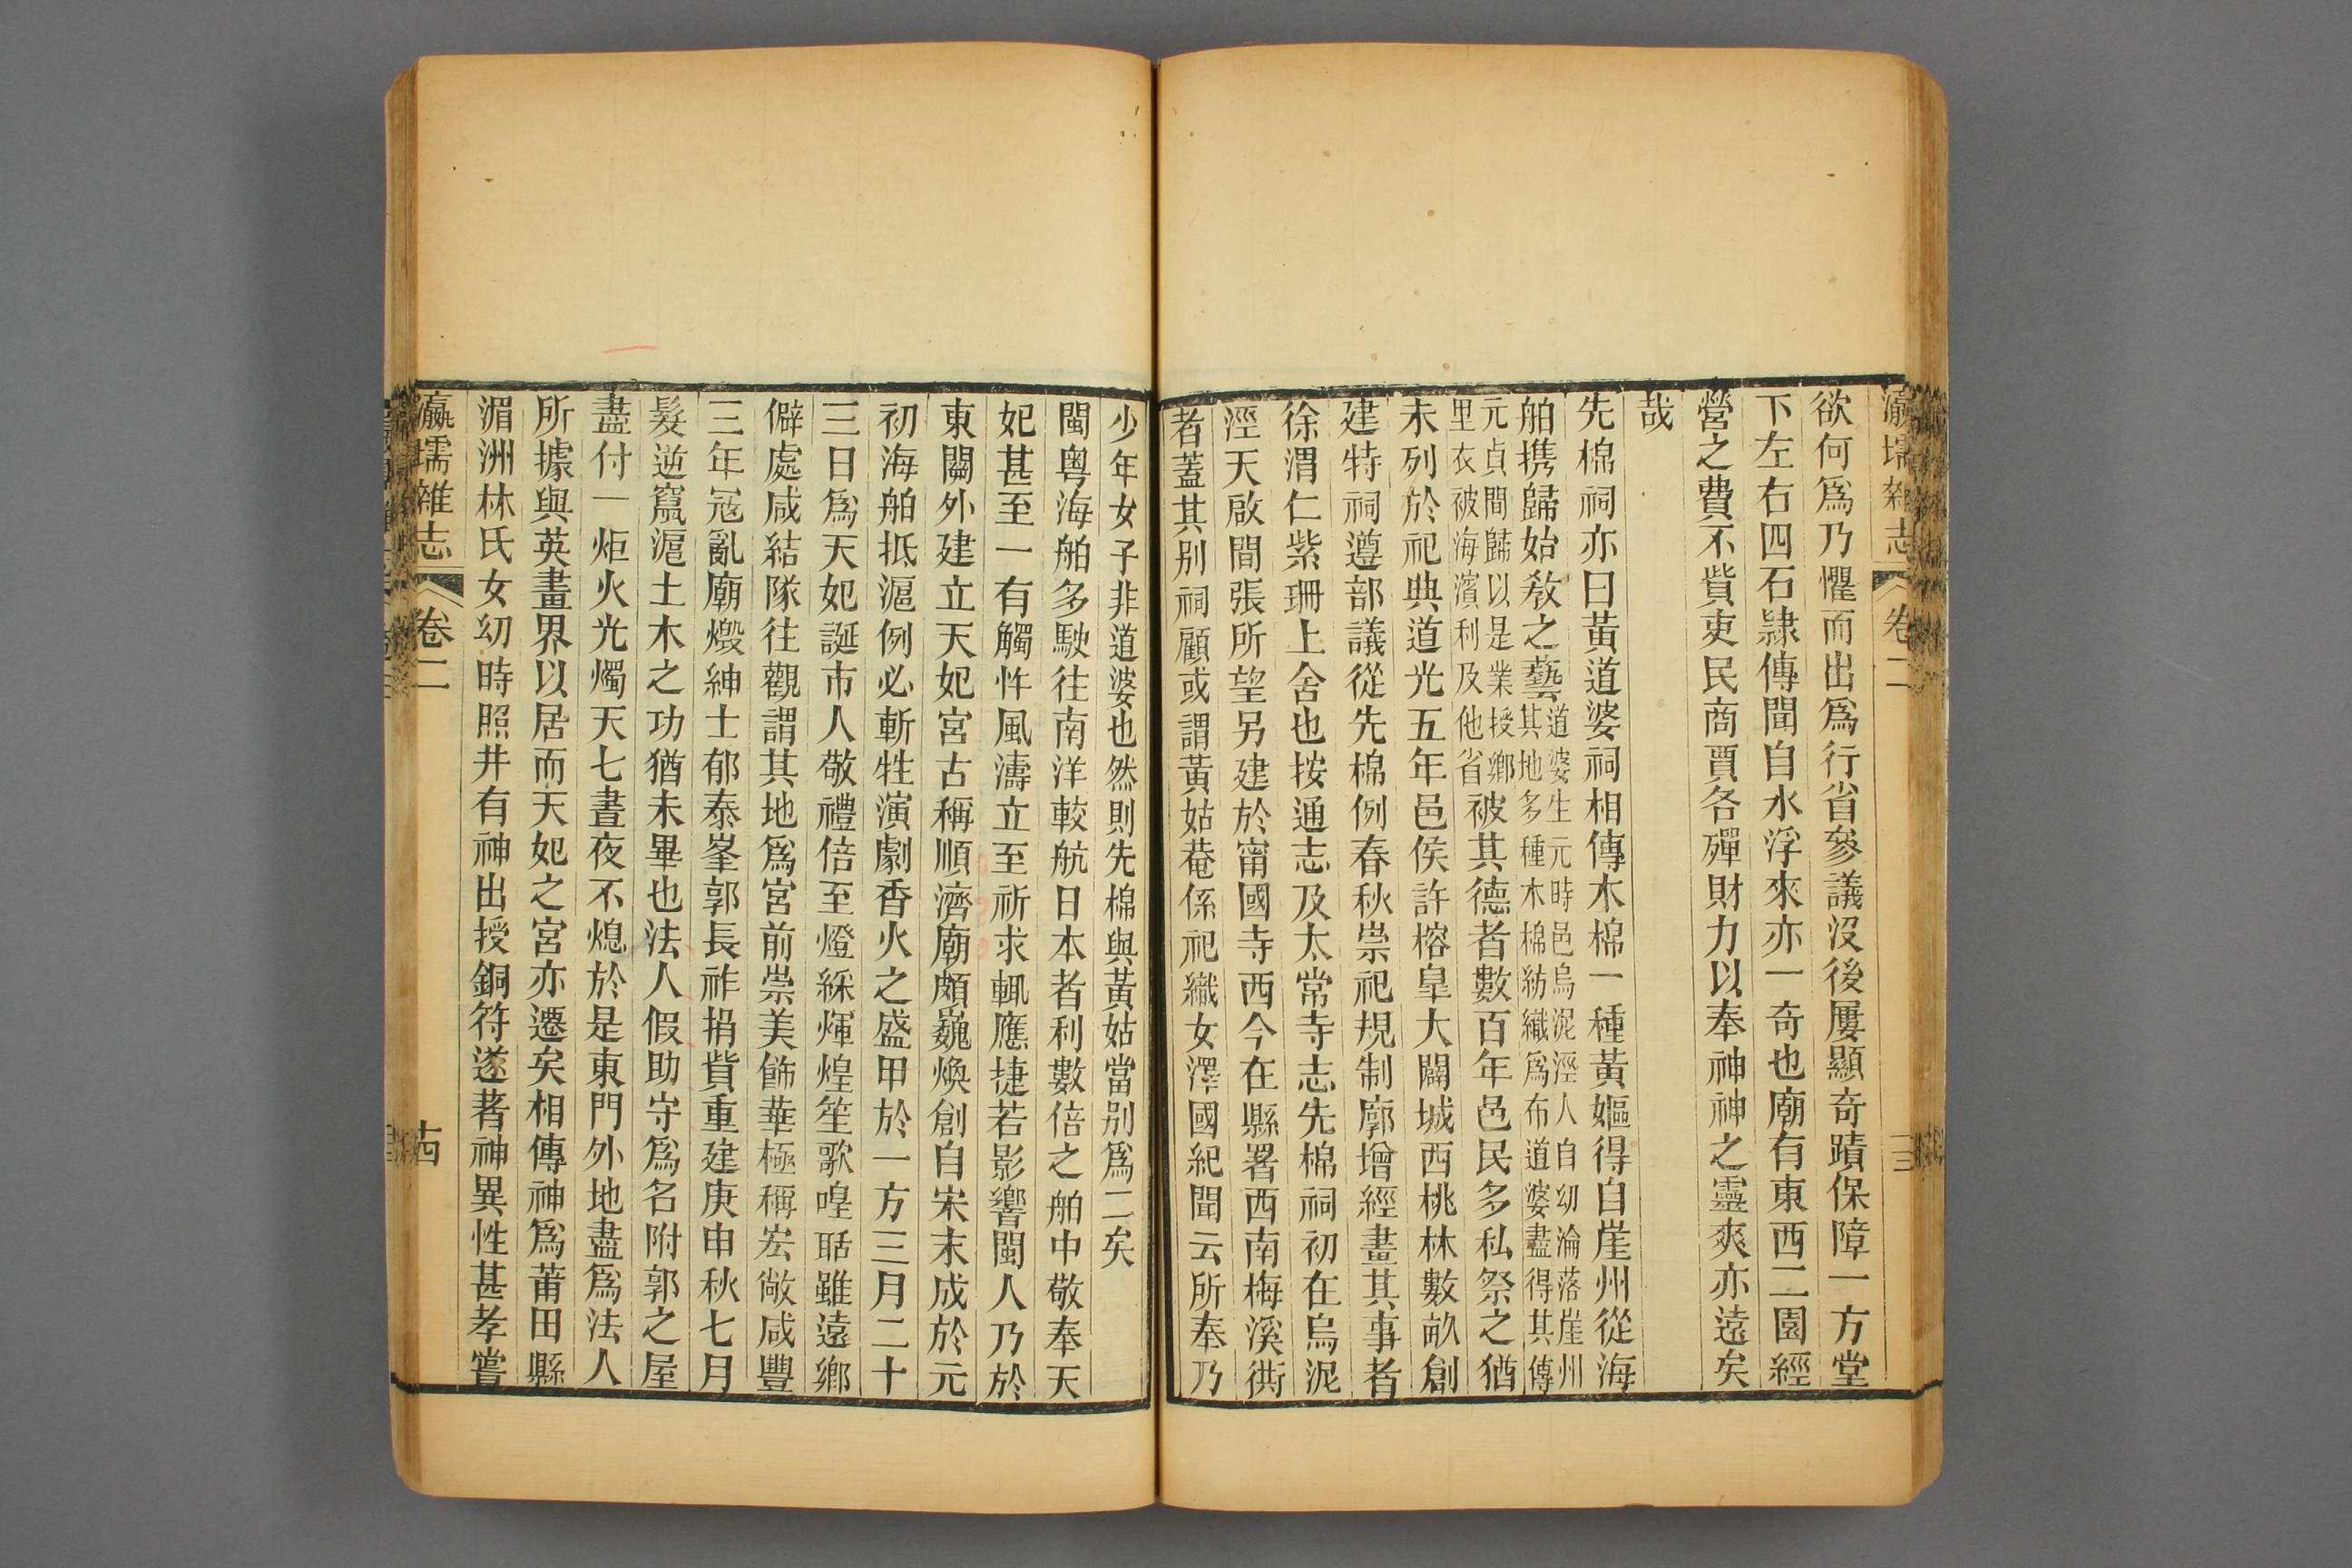 瀛壖雜志 卷二 十三
欲何爲乃懼而出爲行省參議沒後屢顯奇蹟保障一方堂
下左右四石隸傳聞自水浮來亦一奇也廟有東西二園經
營之費不貲吏民商賈各殫財力以奉神神之靈爽亦遠矣
哉
先棉祠亦曰黃道婆祠相傳木棉一種黃嫗得自崖州從海
舶携歸始敎之藝道婆生元時邑烏泥涇人自幼淪落崖州其地多種木棉紡織爲布道婆盡得其傳
元貞間歸以是業授鄉里衣被海濱利及他省被其德者數百年邑民多私祭之猶
未列於祀典道光五年邑侯許榕皐大闢城西桃林數畝創
建特祠遵部議從先棉例春秋崇祀規制廓增經畫其事者
徐渭仁紫珊上舍也按通志及太常寺志先棉祠初在烏泥
涇天啟間張所望另建於甯國寺西今在縣署西南梅溪衖
者蓋其别祠顧或謂黃姑菴係祀織女澤國紀聞云所奉乃
少年女子非道婆也然則先棉與黃姑當别爲二矣
閩粤海舶多駛往南洋較航日本者利數倍之舶中敬奉天
妃甚至一有觸忤風濤立至祈求輒應捷若影響閩人乃於
東關外建立天妃宮古稱順濟廟頗巍煥創自宋末成於元
初海舶抵滬例必斬牲演劇香火之盛甲於一方三月二十
三日爲天妃誕市人敬禮倍至燈綵煇煌笙歌喤聒雖遠鄉
僻處咸結隊往觀謂其地爲宮前崇美飾華極稱宏敞咸豐
三年冦亂廟燬紳士郁泰峯郭長祚捐貲重建庚申秋七月
髮逆竄滬土木之功猶未畢也法人假助守爲名附郭之屋
盡付一炬火光燭天七晝夜不熄於是東門外地盡爲法人
所據與英畫界以居而天妃之宮亦遷矣相傳神爲莆田縣
湄洲林氏女幼時照井有神出授銅符遂著神異性甚孝嘗
瀛壖雜志 卷二 十四